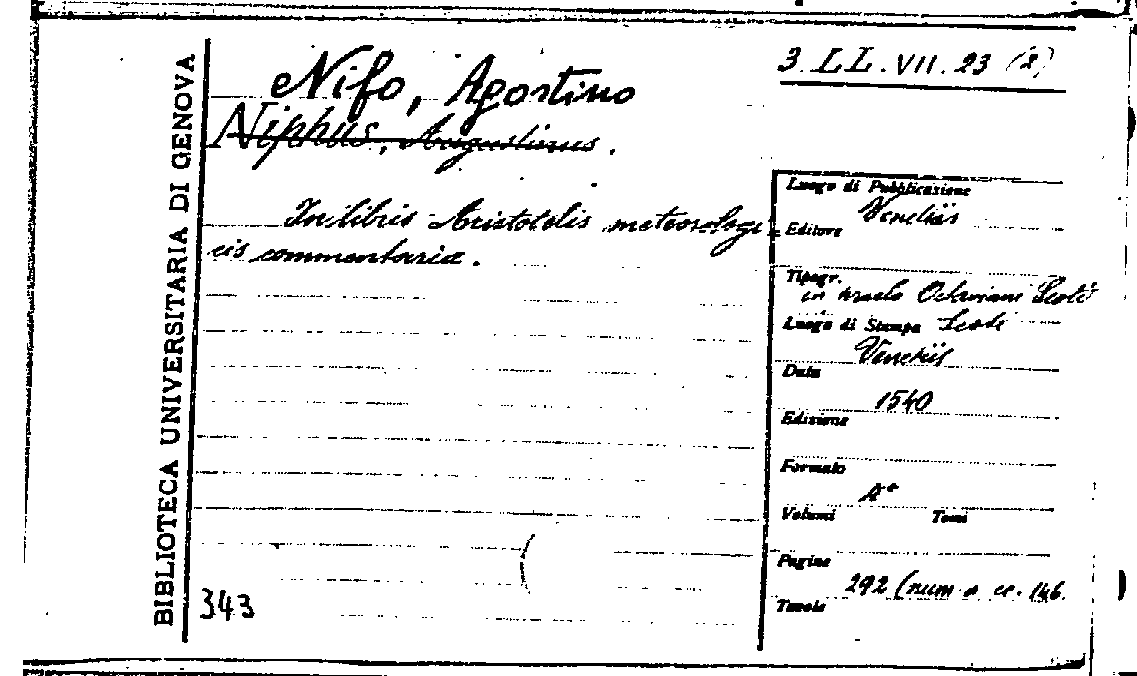 BIBLIOTECA UNIVERSITARIA DI GENOVA
3 LL. VII. 23 (2)
Nifo, Agostino
Niphus, Augustinus.
In libris Aristotelis meteorologi
cis commentaria.
343
Luogo di Pubblicazione
Venetiis
Editore
Tipogr.
in Octaviani Scoti
Luogo di Stampa Scoti
Venetiis
Data
1540
Edizione
Formato
Volumi Tomi
Pagine
292 (num a cc. 146
Tavole